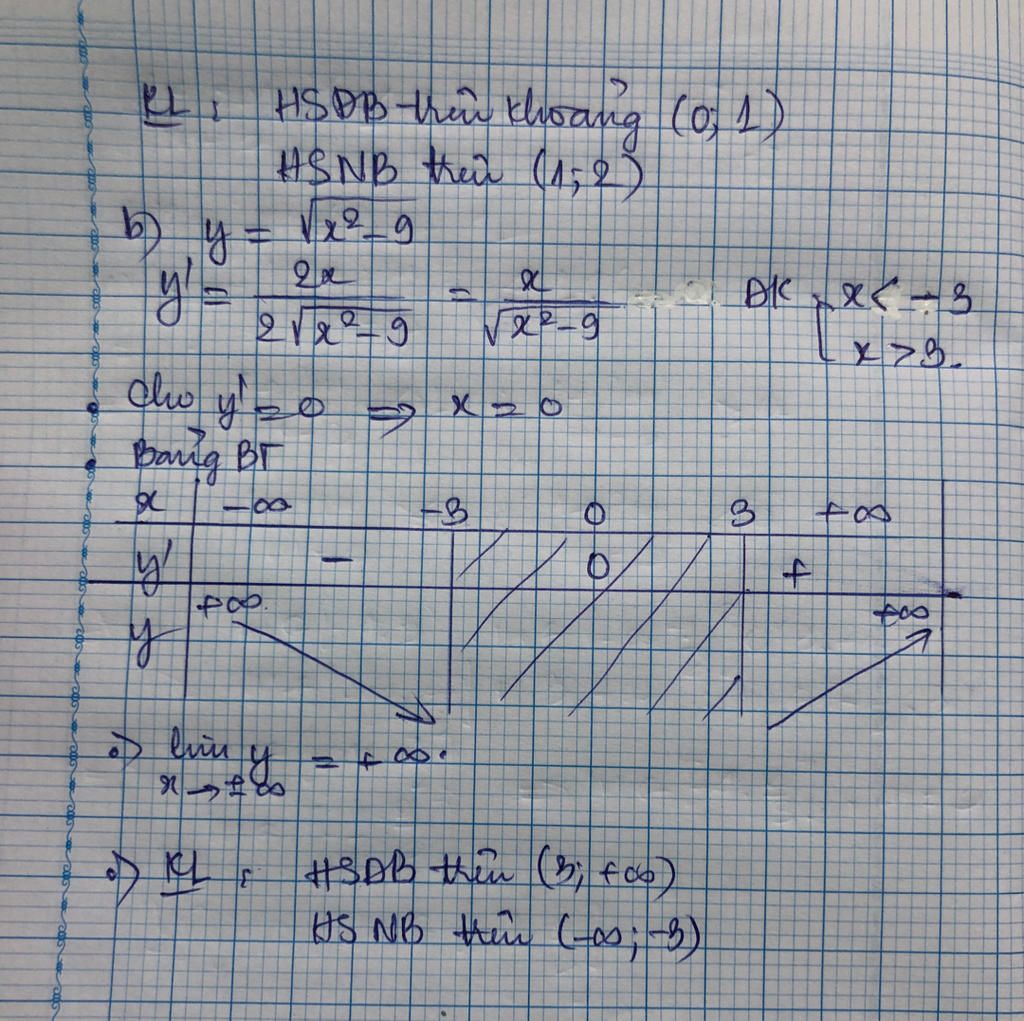 KL : HSĐB trên khoảng (0; 1)
HSNB trên (1; 2)
b) y = √(x² - 9)
y' = 2x / (2√(x² - 9)) = x / √(x² - 9) ĐK [ x < -3
x > 3.
Cho y' = 0 => x = 0
Bảng BT
x -∞ -3 0 3 +∞
y' - 0 +
+∞ +∞
y
•) lim y = +∞.
x → ±∞
•) KL : HSĐB trên (3; +∞)
HSNB trên (-∞; -3)